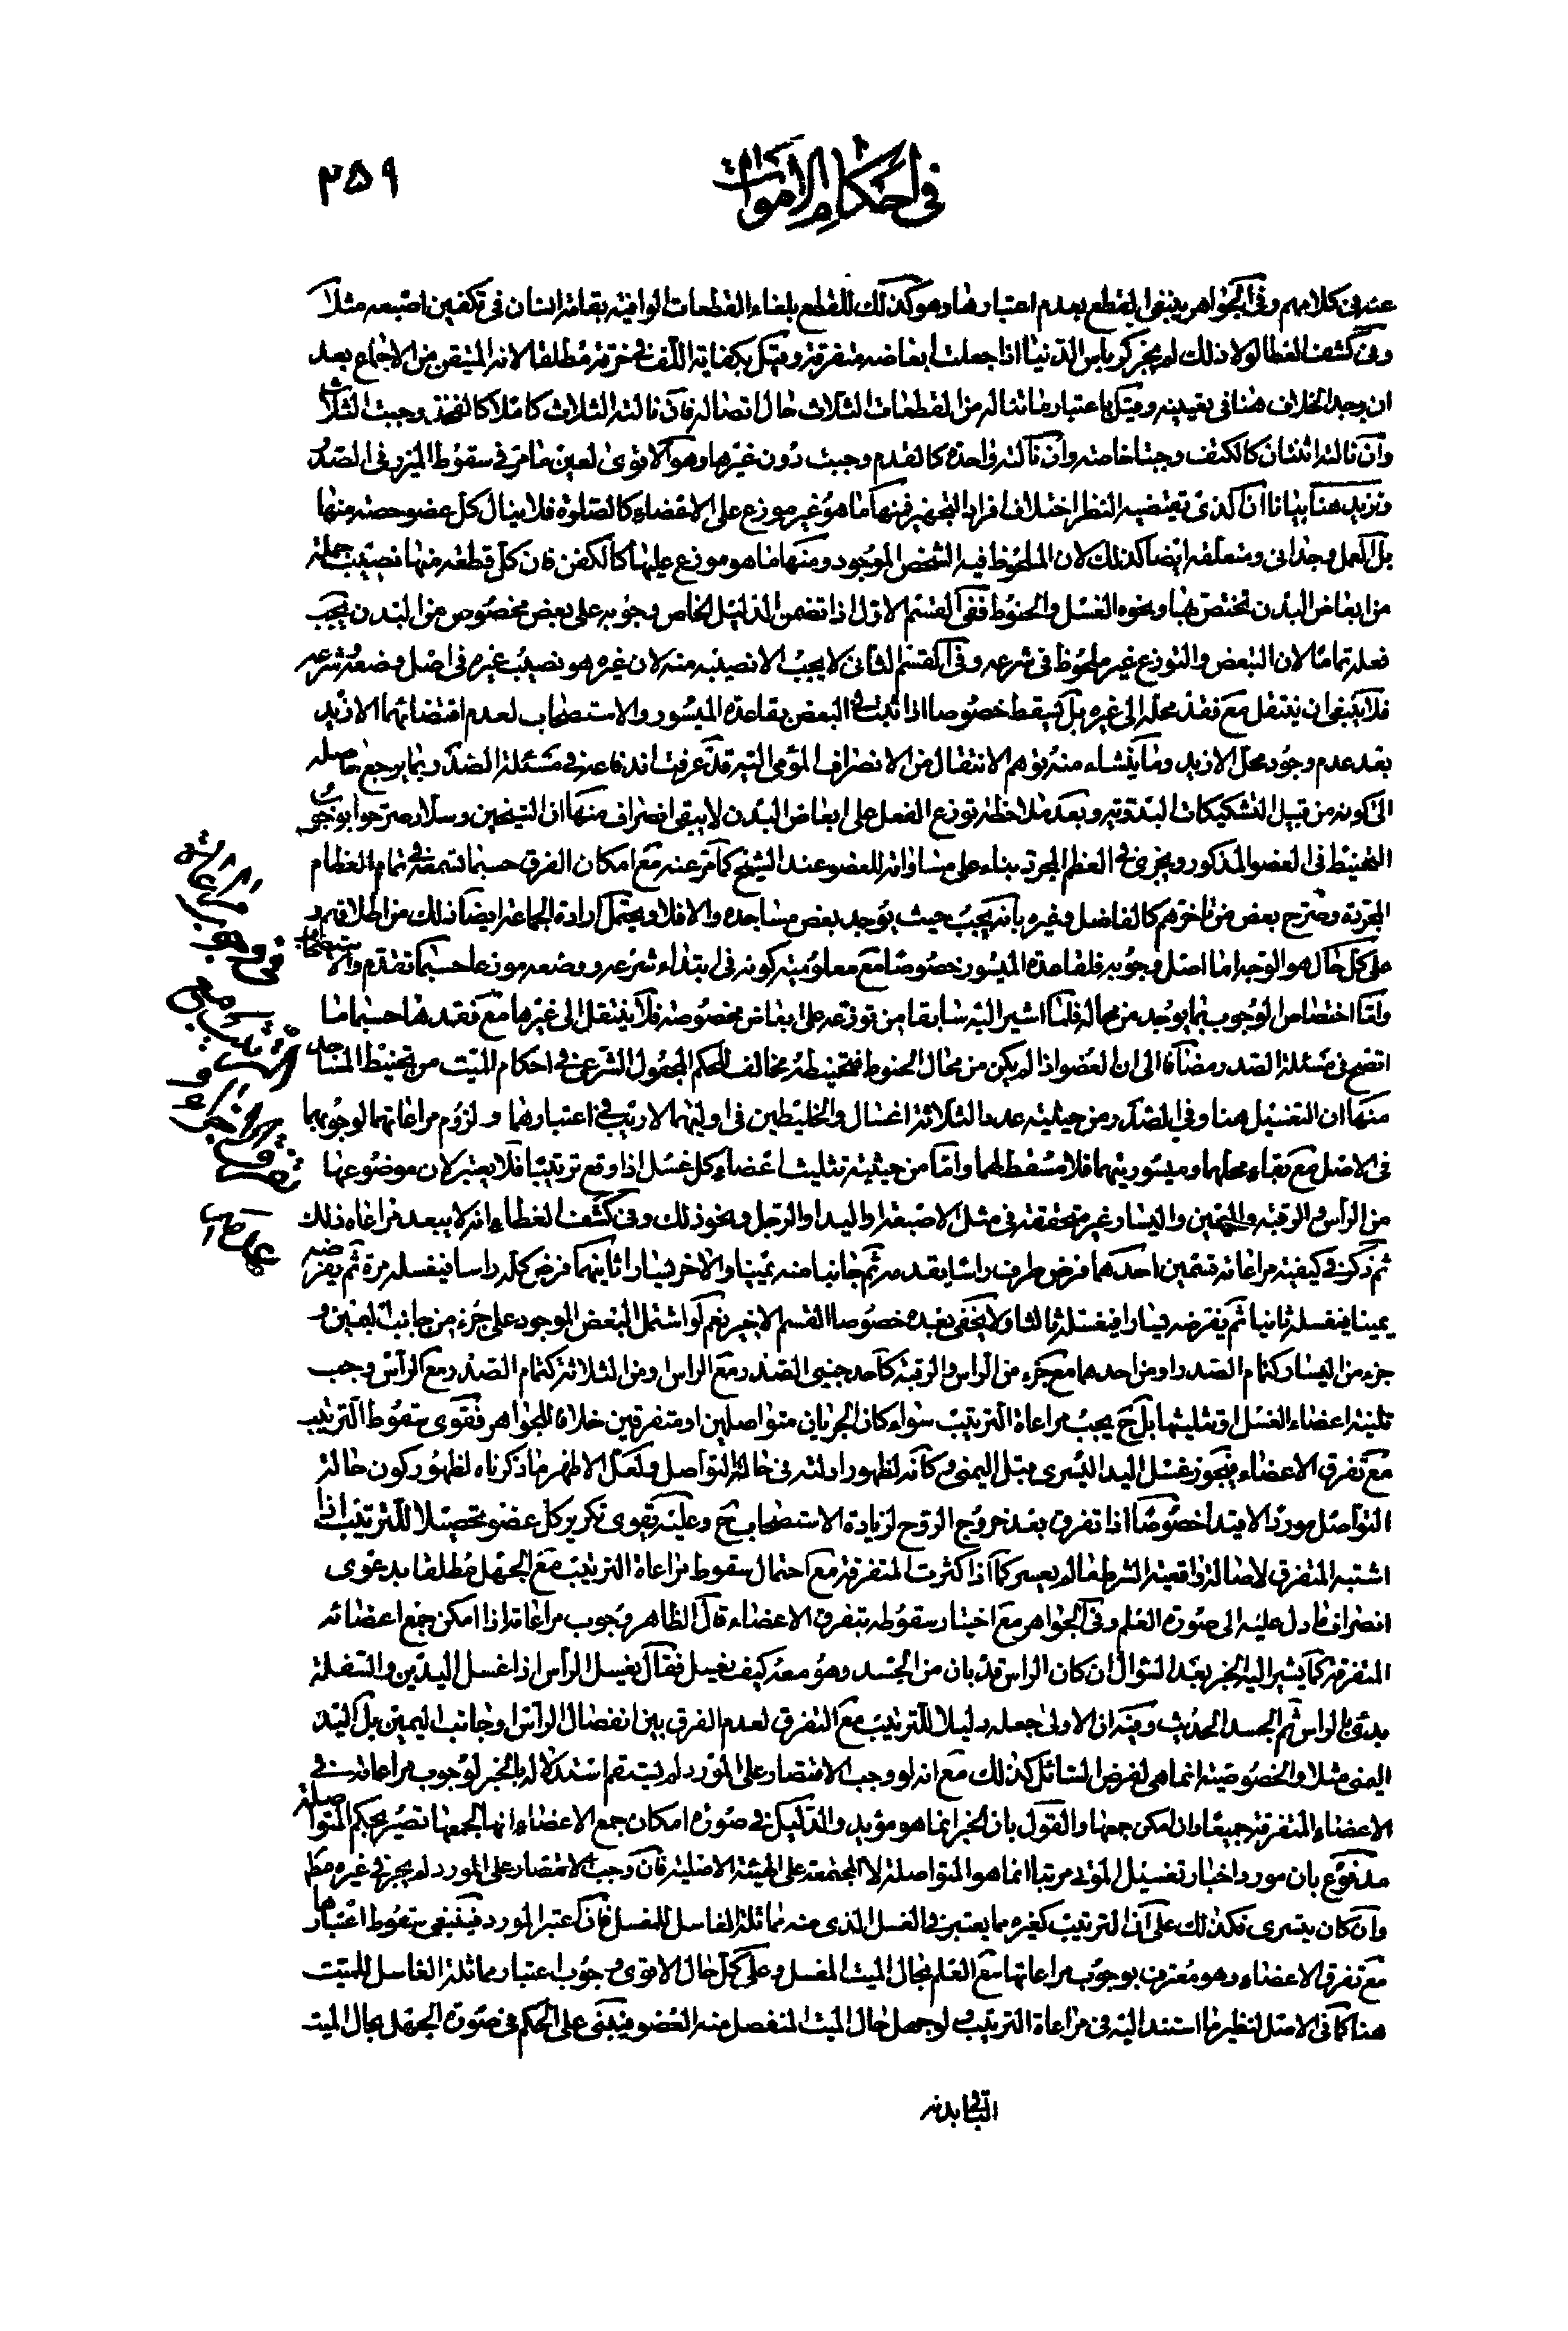 في احكام الاموات
٢٥٩
عنه في كلامهم وفي الجواهر ينبغي القطع بعدم اعتبارها وهو كذلك للقطع بلغاء القطعات الوافية بقامة انسان في تكفين اصبعه مثلا
وفي كشف الغطا لولا ذلك لم يجز كو باس الدنيا اذا جعلت ابعاضه متفرقة وقيل بكفاية اللف في خرقة مطلقا لانه المتيقن من الاجماع بعد
ان يوجد الخلاف هنا في تعيينه وقيل باعتبار ما تناله من القطعات الثلاث حال اتصاله فان نالته الثلاث كاملا كالفخذ وجبت الثلاث
وان نالته اثنتان كالكتف وجبتا خاصة وان نالته واحدة كالقدم وجبت دون غيرها وهو الاقوى لعين ما مر في سقوط الميزر في الصدر
ونزيد هنا بيانا ان الذي يقتضيه النظر اختلاف افراد التجهيز فمنها ما هو غير موزع على الاعضاء كالصلوة فلا ينال كل عضو حصة منها
بل العمل وحداني ومتعلقه ايضا كذلك لان الملحوظ فيه الشخص الموجود ومنها ما هو موزع عليها كالكفن فان كل قطعة منها نصيب جملة
من ابعاض البدن تختص بها ونحوه الغسل والحنوط ففي القسم الاول اذا تضمن الدليل الخاص وجوبه على بعض مخصوص من البدن يجب
فعله تماما لان التبعض والتوزع غير ملحوظ في شرعه وفي القسم الثاني لا يجب الا نصيبه منه لان غيره هو نصيب غيره في اصل وضعه شرعه
فلا ينبغي ان ينتقل مع فقد محله الى غيره بل يسقط خصوصا اذا ثبت في البعض بقاعدة الميسور والاستصحاب لعدم اقتضائهما الازيد
بعد عدم وجود محل الازيد وما ينشاء منه توهم الانتقال من الانصراف المومى اليه قد عرفت اندفاعه في مسئلة الصدر بما يرجع حاصله
الى كونه من قبيل التشكيكات البدوية وبعد ملاحظة توزع الفعل على ابعاض البدن لا يبقى انصراف منها ان الشيخين وسلار صرحوا بوجوب
التحنيط في العضو المذكور ويجزى في العظم المجرد بناء على مساواته للعضو عند الشيخ كما مر عنه مع امكان الفرق حسبما تسمعه في تمام العظام
المجردة وصرح بعض من تاخر عنهم كالفاضل وغيره بانه يجب حيث يوجد بعض مساجده والا فلا ويحتمل ارادة الجماعة ايضا ذلك من اطلاقهم و
على كل حال هو الوجه اما اصل وجوبه فلقاعدة الميسور خصوصا مع معلومية كونه في ابتداء شرعه ووضعه موزعا حسبما تقدم والاستصحاب
واما اختصاص الوجوب بما يوجد من محاله فلما اشير اليه سابقا من توزعه على ابعاض مخصوصة فلا ينتقل الى غيرها مع فقدها حسبما ما
اتضح في مسئلة الصدر مضافا الى ان العضو اذا لم يكن من محال الحنوط فتحنيطه مخالف للحكم المجعول الشرعي في احكام الميت من تحنيط المساجد
منها ان التغسيل هنا وفي الصدر من حيثية عدد الثلاثة اغسال والخليطين في اوليهما لا ريب في اعتبارهما ولزوم مراعاتهما لوجوبهما
في الاصل مع بقاء محلهما وميسوريتهما فلا مسقط لهما واما من حيثية تثليث اعضاء كل غسل اذا وقع ترتيبا فلا يعتبر لان موضوعها
من الراس والرقبة واليمين واليسار غير متحققة في مثل الاصبع او اليد او الرجل ونحو ذلك وفي كشف الغطاء انه لا يبعد مراعاة ذلك
ثم ذكر في كيفية مراعاته قسمين احدهما فرض طرف راسا يقدمه ثم جانبا منه يمينا والاخر يسارا ثانيهما فرض كله راسا فيغسله مرة ثم يفرضه
يمينا فيغسله ثانيا ثم يفرضه يسارا فيغسله ثالثا ولا يخفى بعده خصوصا القسم الاخير نعم لو اشتمل البعض الموجود على جزء من جانب اليمين و
جزء من اليسار كتمام الصدر او من احدهما مع جزء من الراس والرقبة كاحد جنبي الصدر مع الراس او من الثلاثة كتمام الصدر مع الراس وجب
تثنية اعضاء الغسل او تثليثها بل ح يجب مراعاة الترتيب سواء كان الجريان متواصلين او متفرقين خلافا للجواهر فقوى سقوط الترتيب
مع تفرق الاعضاء فيجوز غسل اليد اليسرى قبل اليمنى وكانه لظهور ادلته في حالة التواصل ولعل الاظهر ما ذكرناه لظهور كون حالة
التواصل مورد الابتداء خصوصا اذا تفرق بعد خروج الروح لزيادة الاستصحاب ح وعليه يقوى تكرير كل عضو تحصيلا للترتيب اذا
اشتبه المتفرق لاصالة واقعية الشرط ما لم يعسر كما اذا كثرت المتفرقة مع احتمال سقوط مراعاة الترتيب مع الجهل مطلقا بدعوى
انصراف ما دل عليه الى صورة العلم وفي الجواهر مع اختيار سقوطه بتفرق الاعضاء قال الظاهر وجوب مراعاته اذا امكن جمع اعضائه
المتفرقة كما يشير اليه الخبر بعد السؤال ان كان الراس قد بان من الجسد وهو معه كيف يغسل فقال يغسل الراس اذا غسل اليدين والسفلة
بدئ بالراس ثم الجسد الحديث وفيه ان الاولى جعله دليلا للترتيب مع التفرق لعدم الفرق بين انفصال الراس وجانب اليمين بل اليد
اليمنى مثلا والخصوصية انما هي لفرض السائل كذلك مع انه لو وجب الاقتصار على المورد لم يستقم استدلاله بالخبر لوجوب مراعاته في
الاعضاء المتفرقة جميعا وان امكن جمعها والقول بان الخبر انما هو مؤيد والدليل في صورة امكان جمع الاعضاء انها بجمعها تصير بحكم المتواصلة
مدفوع بان مورد اخبار تغسيل الموتى مرتبا انما هو المتواصلة لا المجتمعة على الهيئة الاصلية فان وجب الاقتصار على المورد لم يجز في غيره مطلقا
وان كان يتسرى فكذلك على ان الترتيب كغيره مما يعتبر في الغسل الذي منه مماثلة الغاسل للمغسل فاذا اعتبر المورد فينبغي سقوط اعتبارها
مع تفرق الاعضاء وهو معترف بوجوب مراعاتها مع العلم بحال الميت المغسل وعلى كل حال الاقوى وجوب اعتبار مماثلة الغاسل للميت
هنا كما في الاصل لنظير ما استند اليه في مراعاة الترتيب ولو جهل حال الميت المنفصل منه العضو فيبنى على الحكم في صورة الجهل بحال الميت
الباقي بدنه